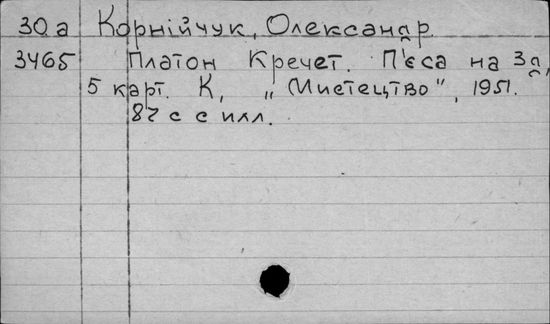 30.а Корнійчук, Олександр.
3465 Платон Кречет. П'єса на 3 д,
5 карт. К, „Мистецтво", 1951.
82 с с илл.